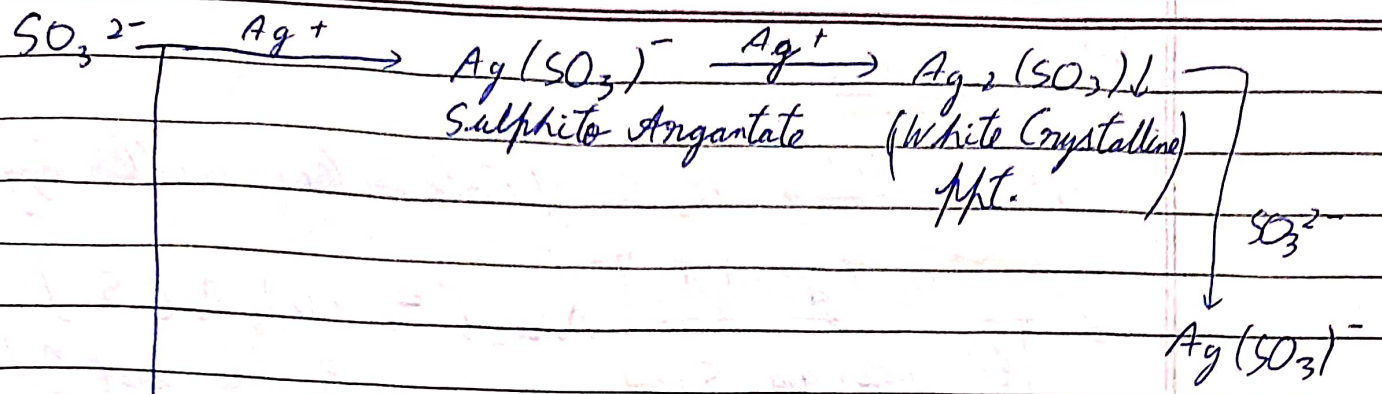 SO₃²⁻ Ag⁺ → Ag(SO₃)⁻ Ag⁺ → Ag₂(SO₃)↓
Sulphito Argantate (White Crystalline)
ppt.
SO₃²⁻
Ag(SO₃)⁻